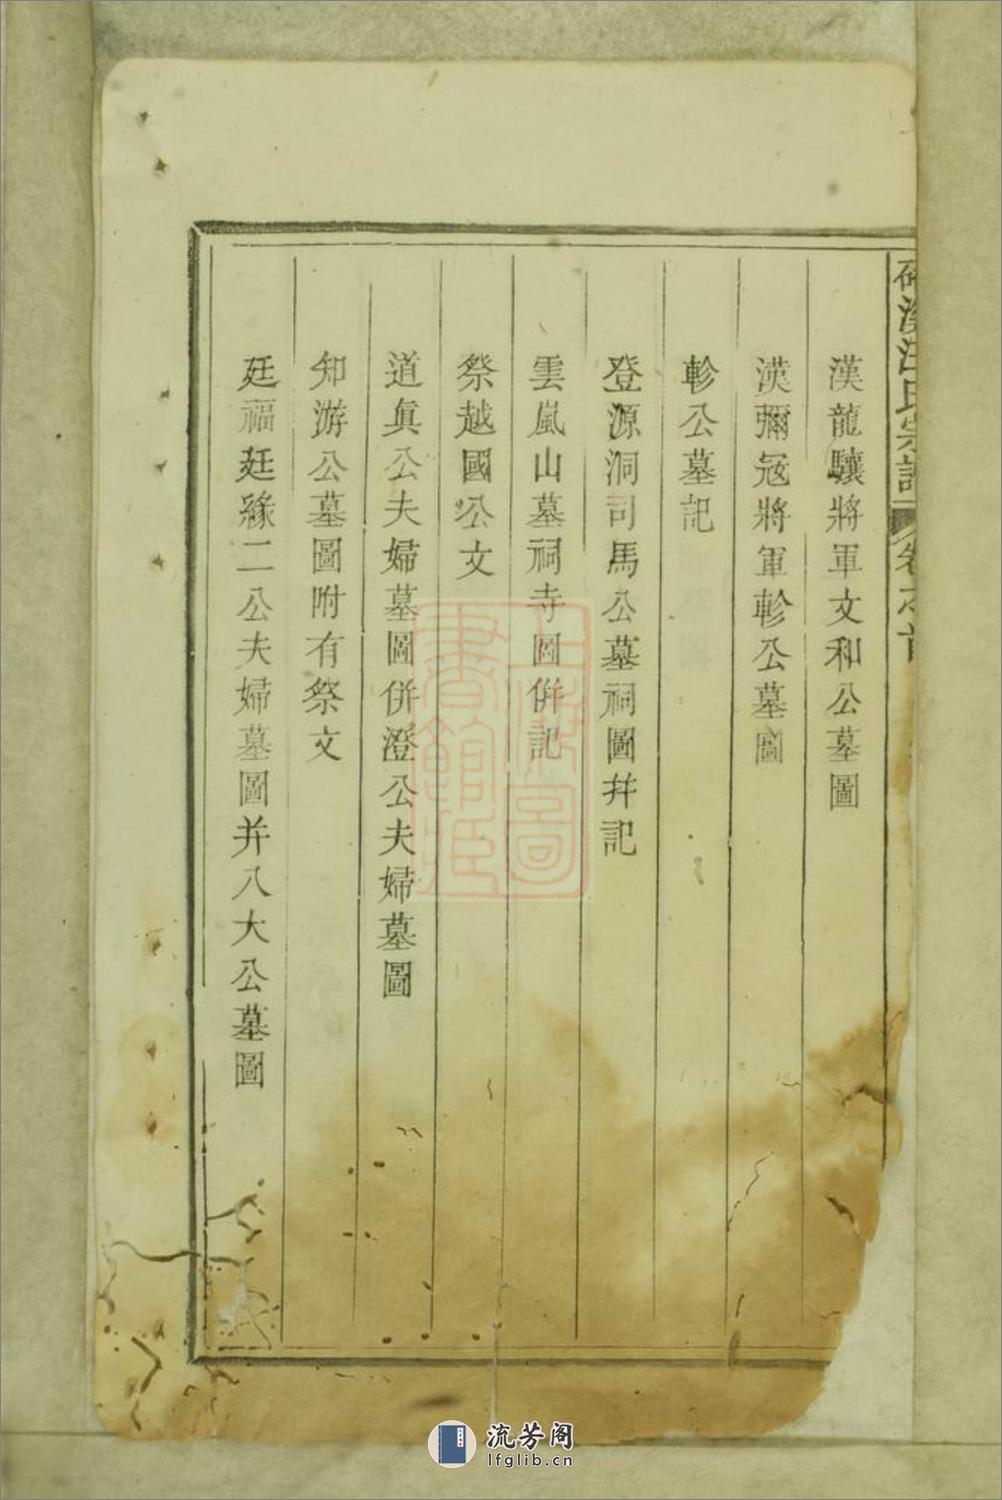 溪汪氏宗譜 卷之首
漢龍驤將軍文和公墓圖
漢彌冦將軍軫公墓圖
軫公墓記
登源洞司馬公墓祠圖并記
雲嵐山墓祠寺圖併記
祭越國公文
道眞公夫婦墓圖併澄公夫婦墓圖
知游公墓圖附有祭文
廷福廷緣二公夫婦墓圖并八大公墓圖
上海圖書館藏
流芳阁
lfglib.cn